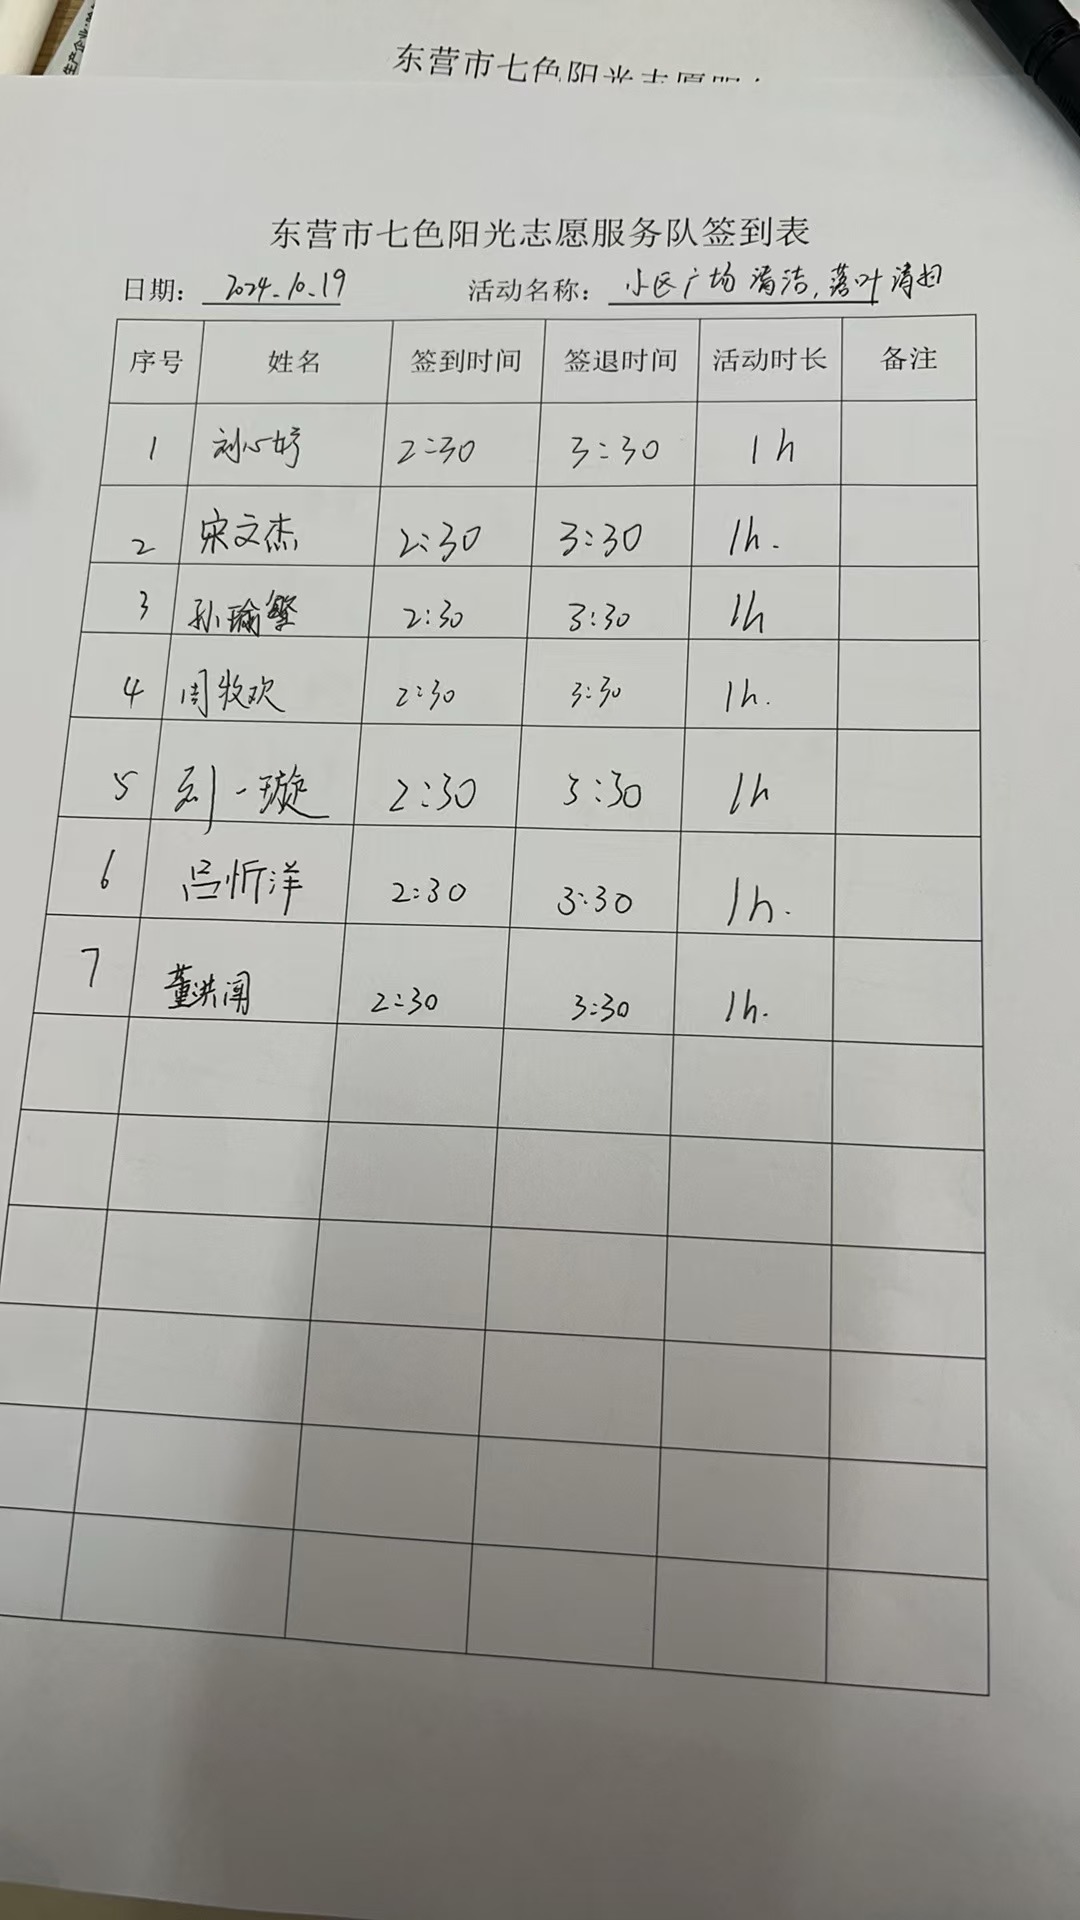 东营市七色阳光志愿服务队
东营市七色阳光志愿服务队签到表
日期: 2024.10.19 活动名称: 小区广场清洁,落叶清扫
序号 姓名 签到时间 签退时间 活动时长 备注
1 刘心妤 2:30 3:30 1h
2 宋文杰 2:30 3:30 1h.
3 孙瑜 2:30 3:30 1h
4 周牧欢 2:30 3:30 1h.
5 刘一璇 2:30 3:30 1h
6 吕忻洋 2:30 3:30 1h.
7 董洪闻 2:30 3:30 1h.